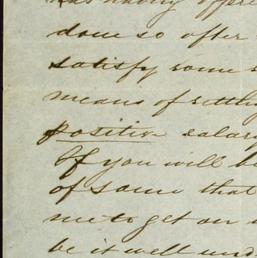 has having offere
done so after
satisfy some s
means of settl
positive salary
If you will b
of some that
me to get on
be it well und